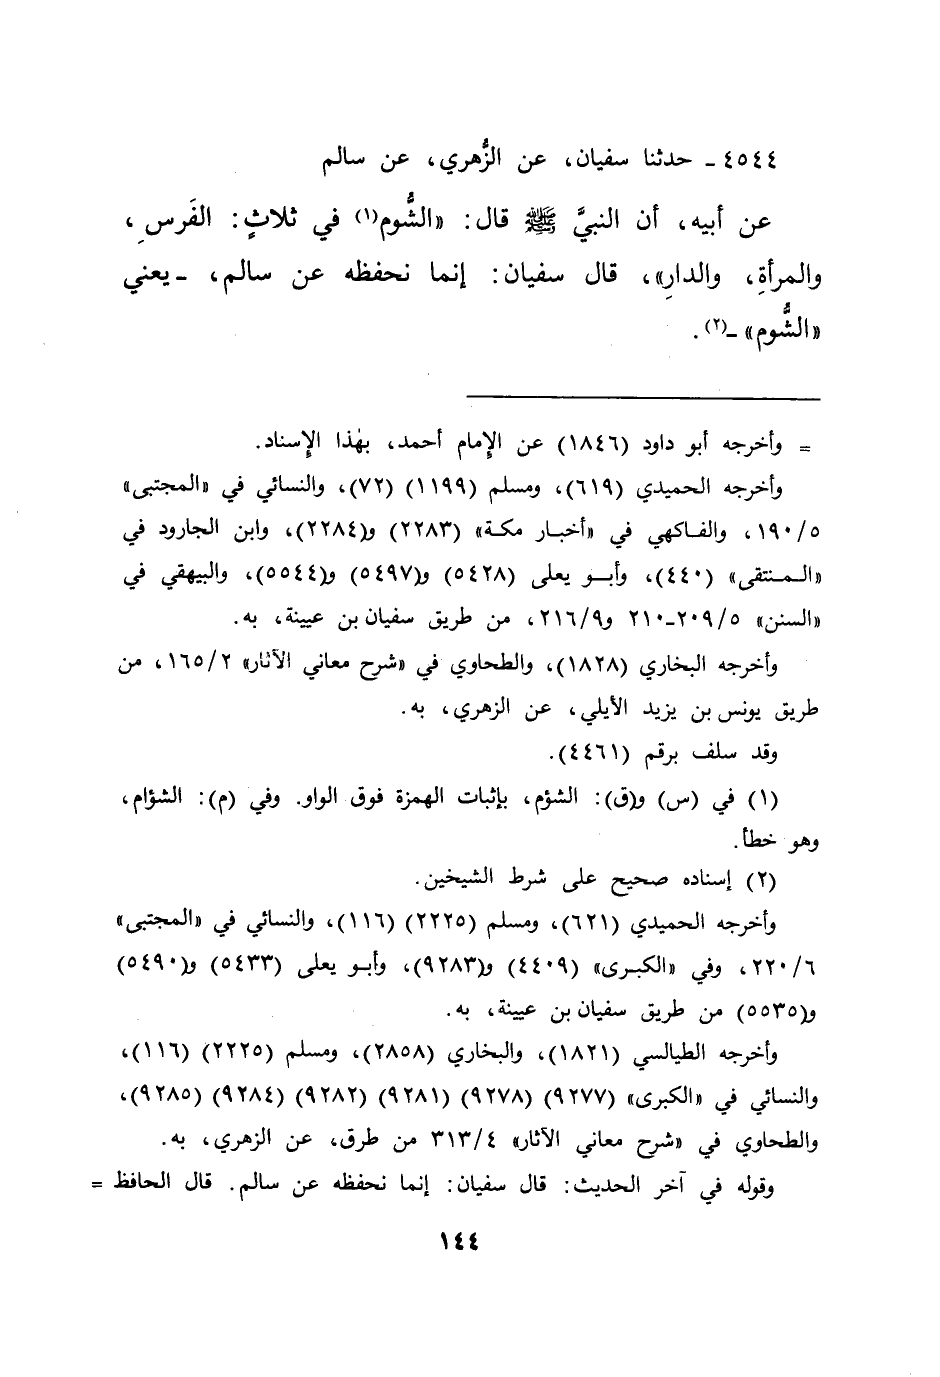 ٤٥٤٤ ـ حدثنا سفيان، عن الزُّهري، عن سالم
عن أبيه، أن النبيَّ ﷺ قال: «الشُّوم(١) في ثلاثٍ: الفَرسِ،
والمرأةِ، والدارِ»، قال سفيان: إنما نحفظه عن سالم، ـ يعني
«الشُّوم» ـ(٢).
= وأخرجه أبو داود (١٨٤٦) عن الإمام أحمد، بهٰذا الإسناد.
وأخرجه الحميدي (٦١٩)، ومسلم (١١٩٩) (٧٢)، والنسائي في «المجتبى»
٥/١٩٠، والفاكهي في «أخبار مكة» (٢٢٨٣) و(٢٢٨٤)، وابن الجارود في
«المنتقى» (٤٤٠)، وأبو يعلى (٥٤٢٨) و(٥٤٩٧) و(٥٥٤٤)، والبيهقي في
«السنن» ٥/٢٠٩ـ٢١٠ و٩/٢١٦، من طريق سفيان بن عيينة، به.
وأخرجه البخاري (١٨٢٨)، والطحاوي في «شرح معاني الآثار» ٢/١٦٥، من
طريق يونس بن يزيد الأيلي، عن الزهري، به.
وقد سلف برقم (٤٤٦١).
(١) في (س) و(ق): الشؤم، بإثبات الهمزة فوق الواو. وفي (م): الشؤام،
وهو خطأ.
(٢) إسناده صحيح على شرط الشيخين.
وأخرجه الحميدي (٦٢١)، ومسلم (٢٢٢٥) (١١٦)، والنسائي في «المجتبى»
٦/٢٢٠، وفي «الكبرى» (٤٤٠٩) و(٩٢٨٣)، وأبو يعلى (٥٤٣٣) و(٥٤٩٠)
و(٥٥٣٥) من طريق سفيان بن عيينة، به.
وأخرجه الطيالسي (١٨٢١)، والبخاري (٢٨٥٨)، ومسلم (٢٢٢٥) (١١٦)،
والنسائي في «الكبرى» (٩٢٧٧) (٩٢٧٨) (٩٢٨١) (٩٢٨٢) (٩٢٨٤) (٩٢٨٥)،
والطحاوي في «شرح معاني الآثار» ٤/٣١٣ من طرق، عن الزهري، به.
وقوله في آخر الحديث: قال سفيان: إنما نحفظه عن سالم. قال الحافظ =
١٤٤